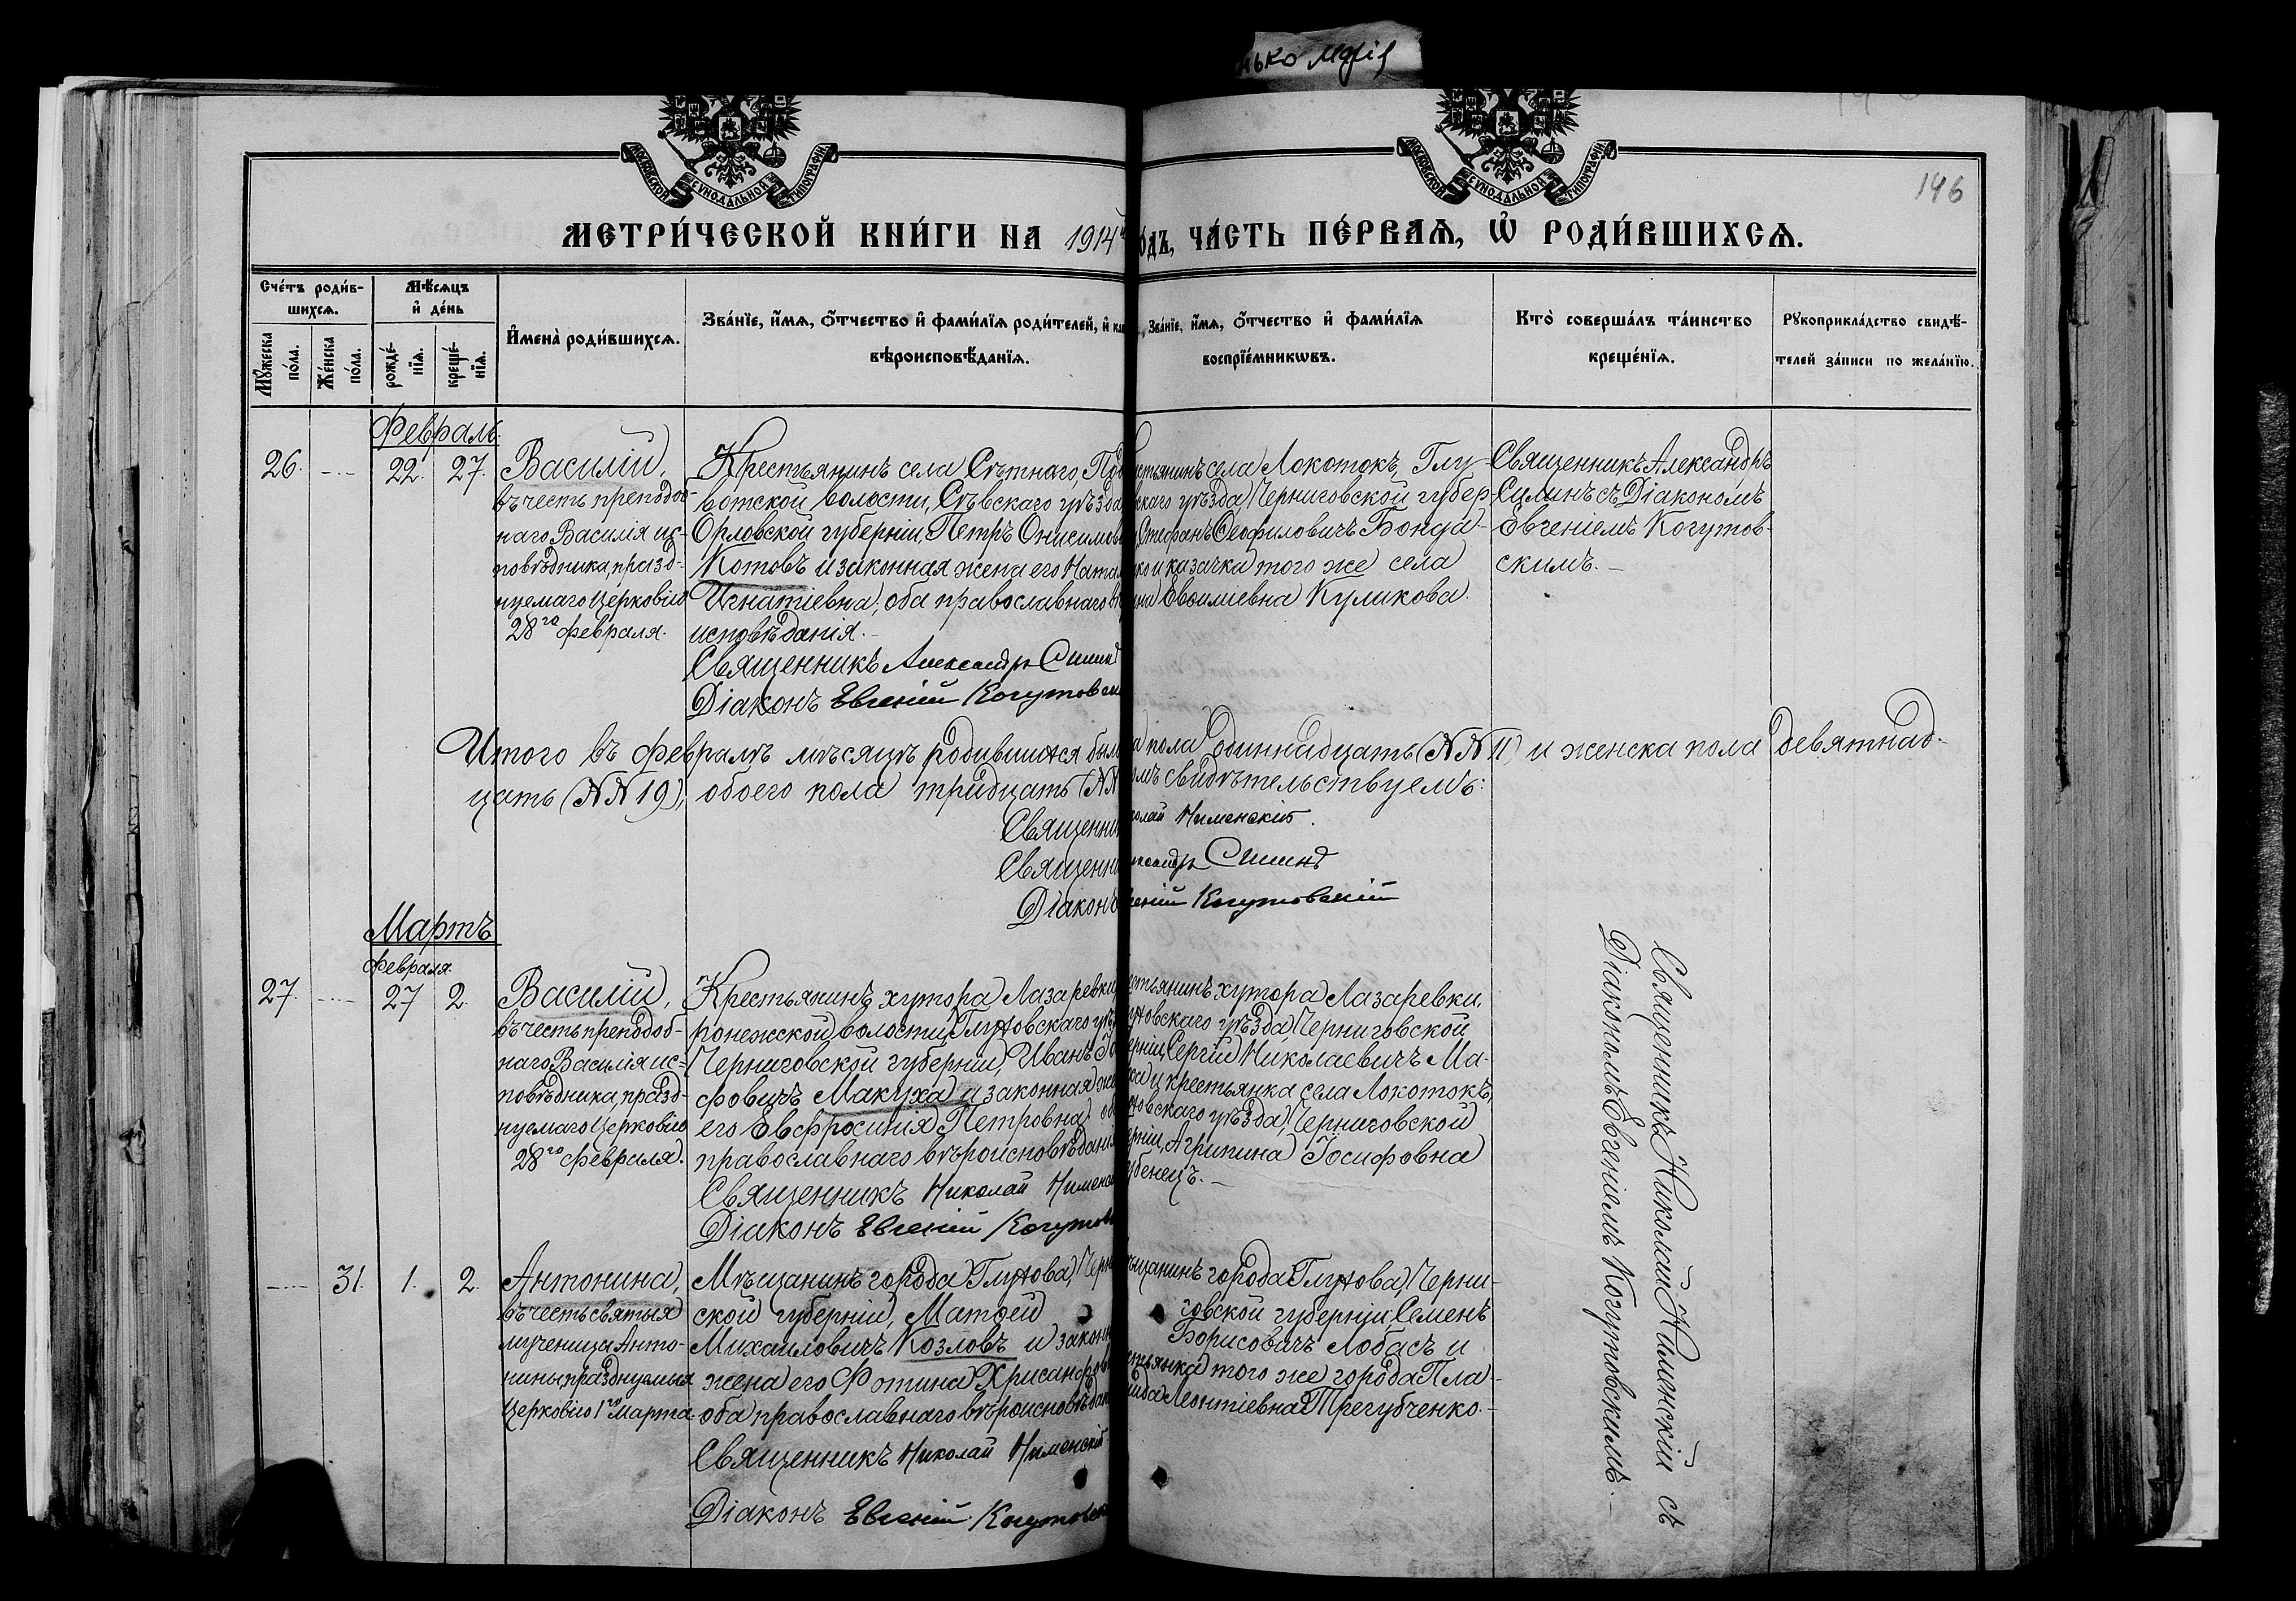 нько Марія
МОСКОВСКОЙ СУНОДАЛЬНОЙ ТИПОГРАФІИ
МОСКОВСКОЙ СУНОДАЛЬНОЙ ТИПОГРАФІИ
146
МЕТРИ́ЧЕСКОЙ КНИ́ГИ НА 1914
ЧА́СТЬ ПЕ́РВАѦ, Ѡ҆ РОДИ́ВШИХСѦ.
Сче́тъ роди́в-
шихсѧ.
Мꙋ́жеска по́ла.
Же́нска по́ла.
Мѣ́сѧцъ и҆ де́нь
рожде́-нїѧ.
креще́-нїѧ.
И҆мена̀ роди́вшихсѧ.
Зва́нїе, и҆́мѧ, ѻ҆́тчество и҆ фами́лїѧ роди́телей, и҆
вѣроисповѣ́данїѧ.
Зва́нїе, и҆́мѧ, ѻ҆́тчество и҆ фами́лїѧ
воспрїе́мникѡвъ.
Кто̀ соверша́лъ та́инство
креще́нїѧ.
Рꙋкоприкла́дство свидѣ́-
телей за́писи по жела́нїю.
Февраль.
26. 22. 27.
Василій,
въ честь преподоб-
наго Василія ис-
повѣдника, празд-
нуемаго Церковію
28го февраля.
Крестьянинъ села Свѣтнаго, Под
ботской волости, Сѣвскаго уѣзда
Орловской губерніи, Петръ Онисимов
Котовъ и законная жена его Ната
Игнатіевна; оба православнаго в
исповѣданія.
Священникъ Александръ Силинъ
Діаконъ Евгеній Когутовск
стьянинъ села Локотокъ, Глу-
скаго уѣзда, Черниговской губер-
Стефанъ Ѳеофиловичъ Бонда-
ко и казачка того же села
Евсиліевна Куликова.
Священникъ Александръ
Силинъ съ Діакономъ
Евгеніемъ Когутов-
скимъ.
Итого въ февралѣ мѣсяцѣ родившихся был
а пола одиннадцать (NN 11) и женска пола девятнад-
цать (NN 19), обоего пола тридцать (NN
омъ свидѣтельствуемъ:
Священни
колай Нименскій.
Священни
ександръ Силинъ
Діаконъ
геній Когутовскій
Мартъ
Февраля.
27. 27 2.
Василій,
въ честь преподоб-
наго Василія ис-
повѣдника, празд-
нуемаго Церковію
28го февраля.
Крестьянинъ хутора Лазаревки,
ронежской волости, Глуховскаго уѣ
Черниговской губерніи, Иванъ Іо
сифовичъ Макуха и законная же
его Евфросинія Петровна, об
православнаго вѣроисповѣдані
Священникъ Николай Нименс
Діаконъ Евгеній Когутов
стьянинъ хутора Лазаревки,
ховскаго уѣзда, Черниговской
ерніи, Сергій Николаевичъ Ма-
ха и крестьянка села Локотокъ,
ховскаго уѣзда, Черниговской
ерніи, Агрипина Іосифовна
убенецъ.
Священникъ Николай Нименскій съ
Діакономъ Евгеніемъ Когутовскимъ.
31. 1. 2.
Антонина,
въ честь святыя
мученицы Анто-
нины, празднуемыя
Церковію 1го Марта.
Мѣщанинъ города Глухова, Черн
ской губерніи, Матѳей
Михаиловичъ Козловъ и законн
жена его Фотина Хрисанфов
оба православнаго вѣроисповѣдан
Священникъ Николай Нименскій
Діаконъ Евгеній Когутовск
ѣщанинъ города Глухова, Черни-
говской губерніи, Семенъ
Борисовичъ Лобасъ и
стьянка того же города Пла-
нида Леонтіевна Трегубченко.